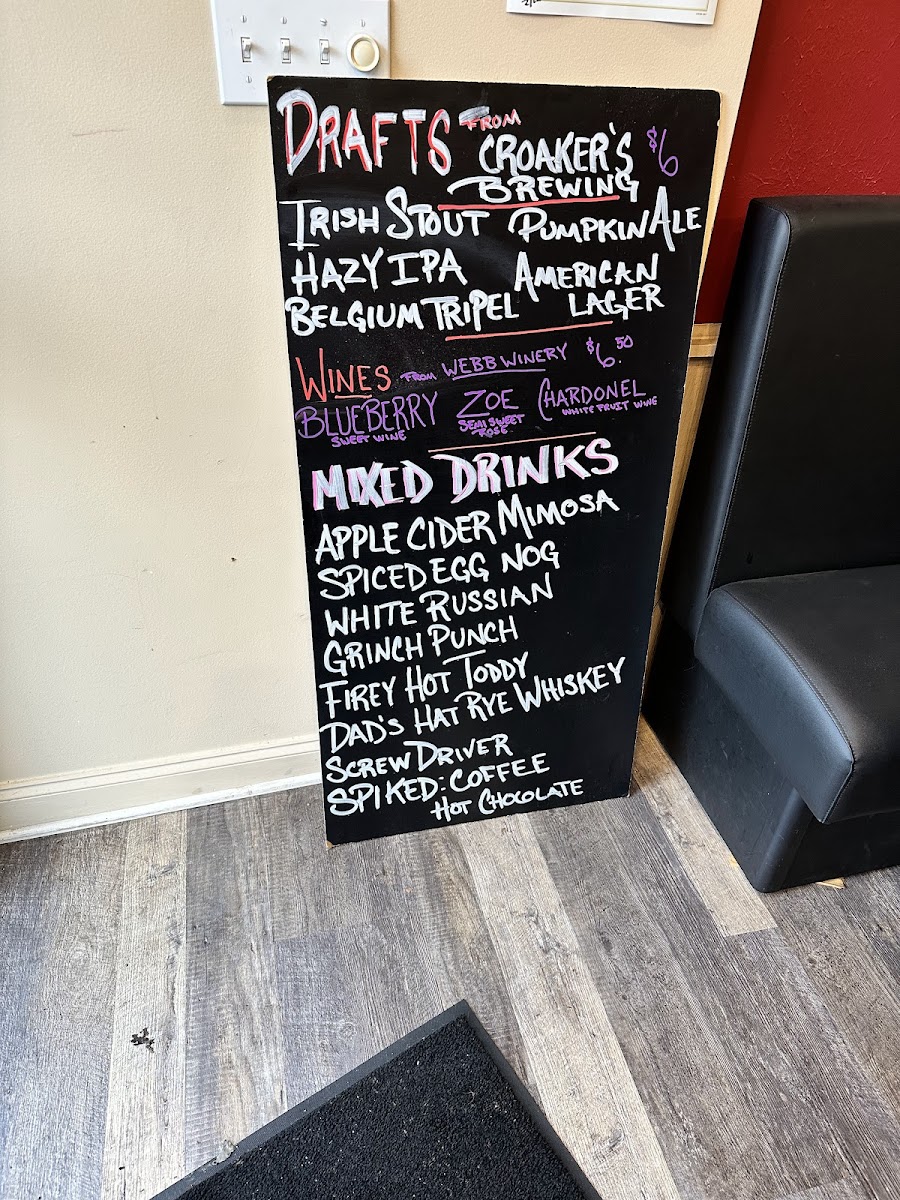 DRAFTS FROM CROAKER'S $6
BREWING
IRISH STOUT PUMPKIN ALE
HAZY IPA AMERICAN
BELGIUM TRIPEL LAGER
WINES FROM WEBB WINERY $6.50
BLUEBERRY ZOE CHARDONEL
SWEET WINE SEMI SWEET WHITE FRUIT WINE
ROSE
MIXED DRINKS
APPLE CIDER MIMOSA
SPICED EGG NOG
WHITE RUSSIAN
GRINCH PUNCH
FIREY HOT TODDY
DAD'S HAT RYE WHISKEY
SCREW DRIVER
SPIKED: COFFEE
HOT CHOCOLATE